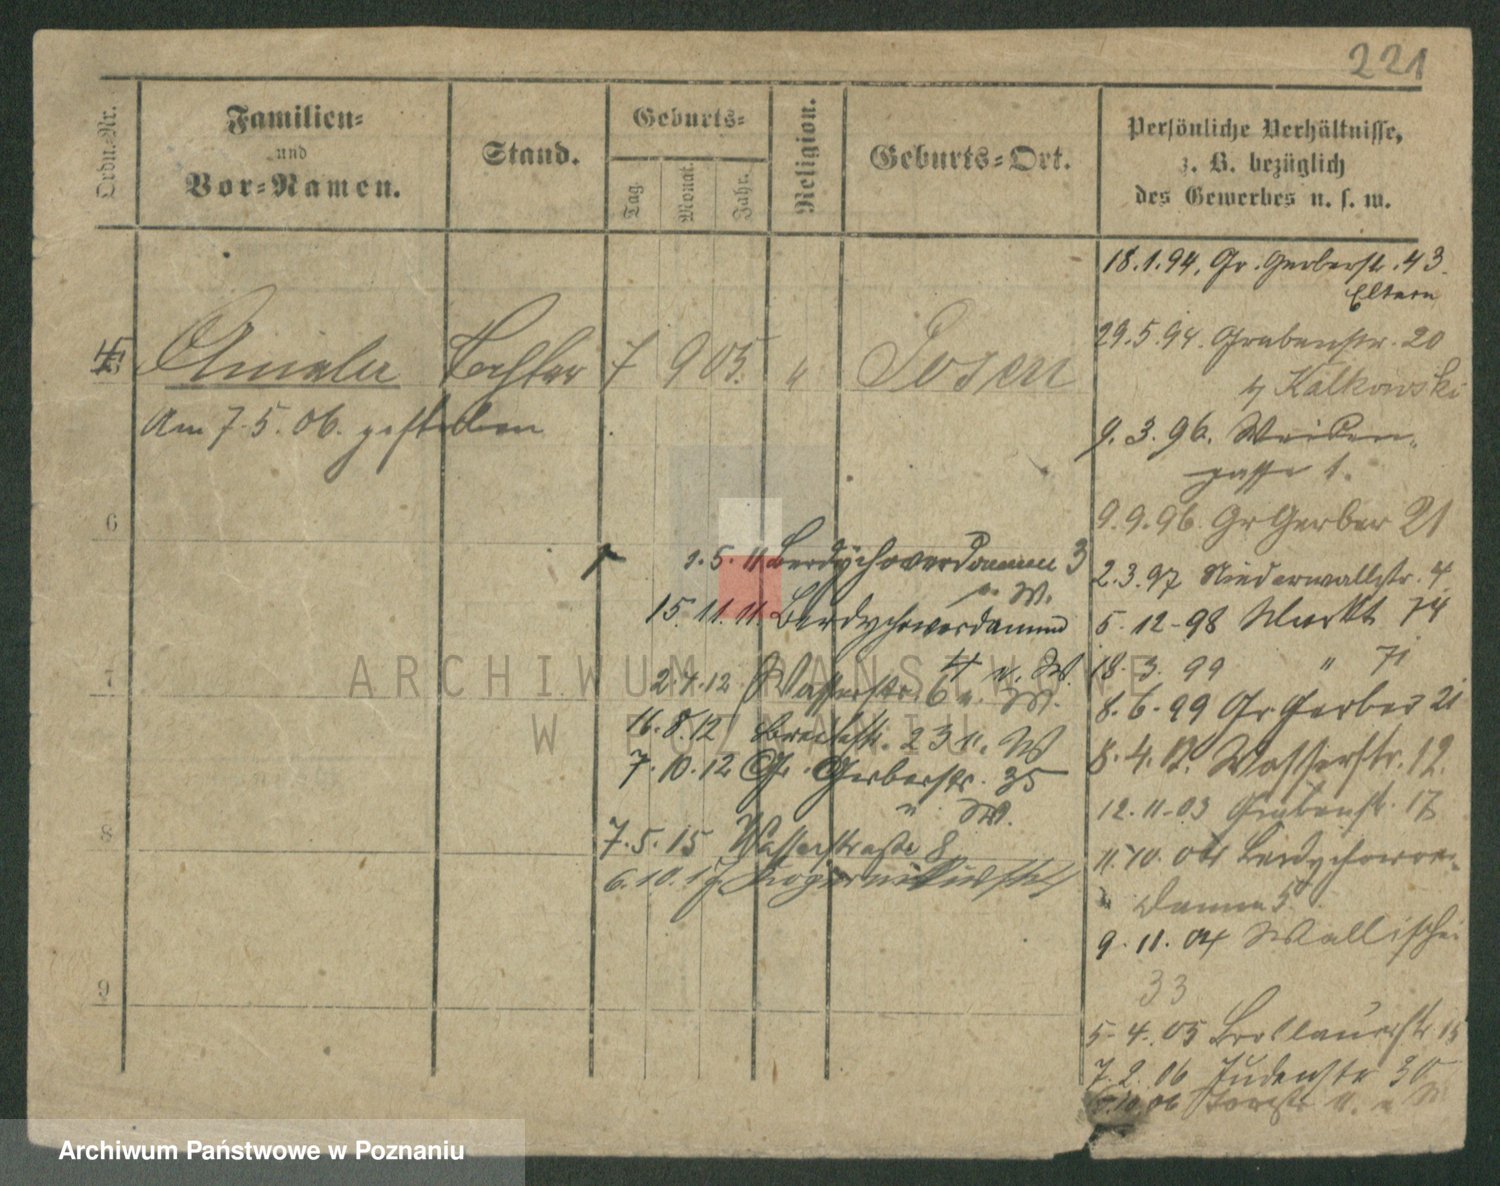 221
Ordn.-Nr.
Familien-
und
Vor-Namen.
Stand.
Geburts-
Tag.
Monat.
Jahr.
Religion.
Geburts-Ort.
Persönliche Verhältnisse,
z. B. bezüglich
des Gewerbes u. s. w.
5 Amalie Tochter 7 9 05. " Posen
Am 7.5.06. gestorben
6
7
8
9
1.5.11 Berdychowerdamm 3
u. W.
15.11.11. Berdychowerdamm
4 u. W.
2.4.12 Wasserstr. 6 u. W.
16.8.12 Breitestr. 23 u. W
7.10.12 Gr. Gerberstr. 35
u. W.
7.5.15 Wasserstraße 8
6.10.17
18.1.94, Gr. Gerberstr. 43.
Eltern
29.5.94. Grabenstr. 20
b/ Kalkowski
9.3.96. Weiden-
gasse 1.
9.9.96. Gr Gerber 21
2.3.97 Niederwallstr. 4
5.12-98 Markt 74
18.3.99 " 71
8.6.99 Gr. Gerber 21
8.4. Wasserstr. 12.
12.11-03 Grabenst. 17
11.10.04 Berdychower-
Damm 5
9.11.04 Wallischei
33
5.4.05 Breslauerstr 15
7.2.06 Judenstr 30
06 11. u W
ARCHIWUM PAŃSTWOWE
W POZNANIU
Archiwum Państwowe w Poznaniu